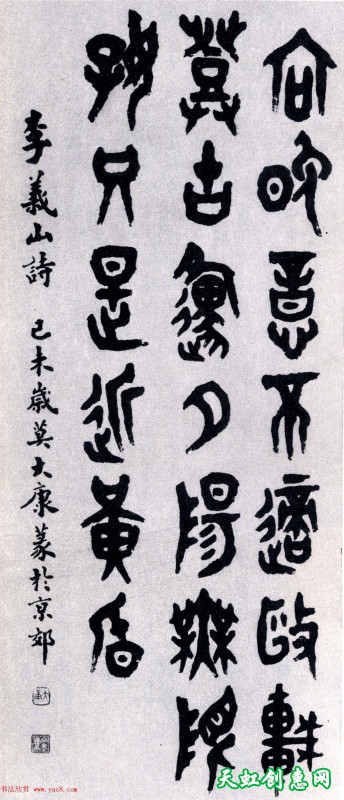 向晚意不適驅車
登古原夕陽無限
好只是近黃昏
李義山詩 己未歲莫大康篆於京郊
书法欣赏 www.yac8.com
天虹创惠网